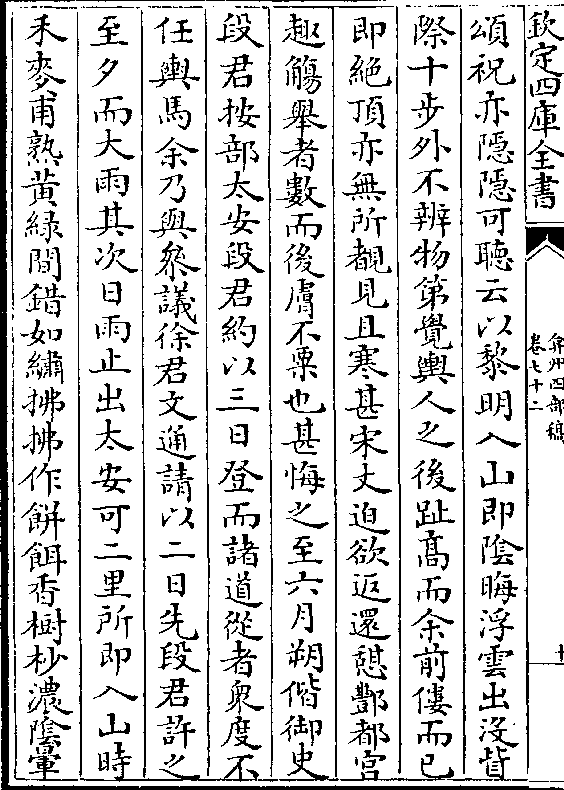 欽定四庫全書
弇州四部稿
卷七十二
頌祝亦隠隠可聽云以黎明入山即陰晦浮雲出没眥
際十步外不辨物第覺輿人之後趾髙而余前僂而已
即絶頂亦無所覩見且寒甚宋丈迫欲返還憇酆都宫
趣觴舉者數而後膚不栗也甚悔之至六月朔偕御史
段君按部太安段君約以三日登而諸道從者衆度不
任輿馬余乃與叅議徐君文通請以二日先段君許之
至夕而大雨其次日雨止出太安可二里所即入山時
禾麥甫熟黄緑間錯如繡拂拂作餅餌香樹杪濃陰暈